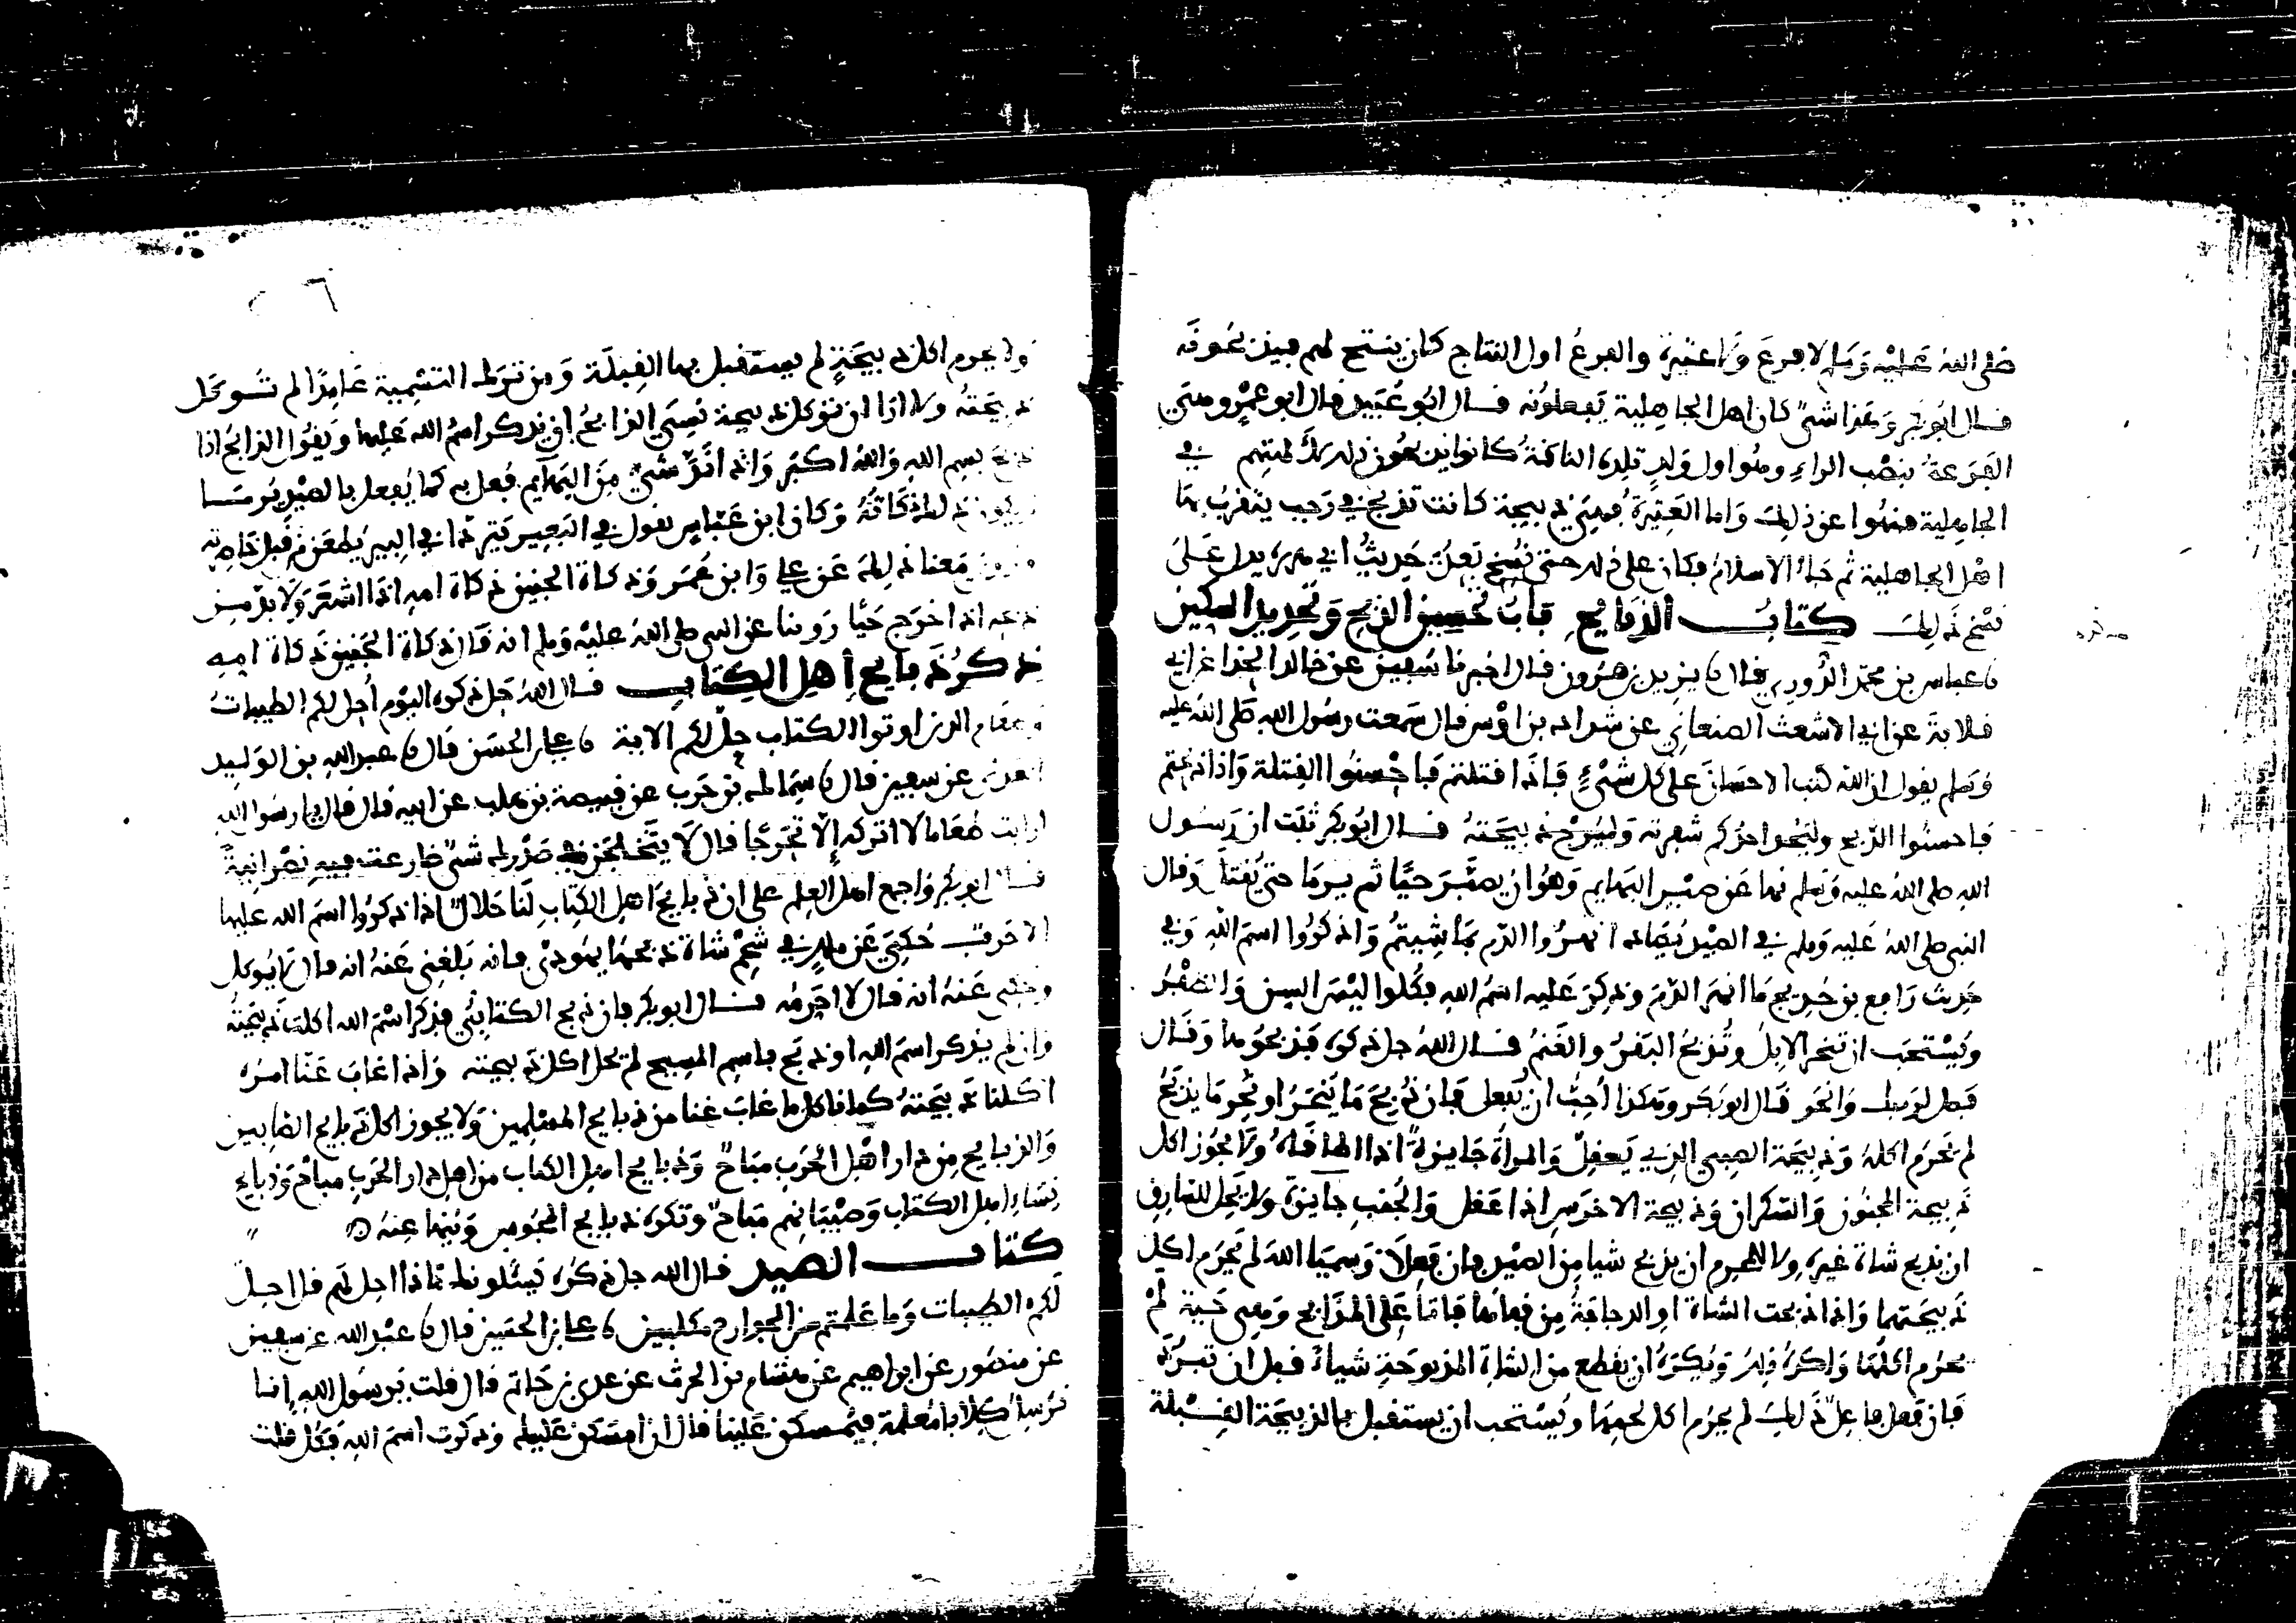 صلى الله عليه وسلم لا فرع ولا عتيرة والفرع اول النتاج كان ينتج لهم فيذبحونه
قال ابو بكر وهذا شيء كان اهل الجاهلية يفعلونه قال ابو عبيد قال ابو عمرو وهي
الفرعة بنصب الراء وهو اول ولد تلده الناقة كانوا يذبحون ذلك لالهتهم في
الجاهلية فنهوا عن ذلك واما العتيرة فهي ذبيحة كانت تذبح في رجب يتقرب بها
اهل الجاهلية ثم جاء الاسلام فكان على ذلك حتى نسخ بعد حديث ابي هريرة يدل على
نسخ ذلك كتاب الذبايح باب تحسين الذبح وتحديد السكين
نا عباس بن محمد الدوري قال نا يزيد بن هرون قال اخبرنا سفين عن خالد الحذا عن ابي
قلابة عن ابي الاشعث الصنعاني عن شداد بن اوس قال سمعت رسول الله صلى الله عليه
وسلم يقول ان الله كتب الاحسان على كل شيء فاذا قتلتم فاحسنوا القتلة واذا ذبحتم
فاحسنوا الذبح وليحد احدكم شفرته وليرح ذبيحته قال ابو بكر ثبت ان رسول
الله صلى الله عليه وسلم نها عن صبر البهايم وهو ان يصبر حيا ثم يرما حتى يقتل وقال
النبي صلى الله عليه وسلم في الصيد يصاد انهروا الدم بما شيتم واذكروا اسم الله وفي
حديث رافع بن خديج ما انهر الدم وذكر عليه اسم الله فكلوا ليس السن والظفر
ويستحب ان تنحر الابل وتذبح البقر والغنم قال الله جل ذكره فذبحوها وقال
فصل لربك وانحر قال ابو بكر وهكذا احب ان يفعل فان ذبح ما ينحر او نحر ما يذبح
لم يحرم اكله وذبيحة الصبي الذي يعقل والمراة جايزة اذا اطاقاه ولا يجوز اكل
ذبيحة المجنون والسكران وذبيحة الاخرس اذا عقل والجنب جايزة ولا يحل للسارق
ان يذبح شاة غيره ولا المحرم ان يذبح شيا من الصيد فان فعلا وسميا الله لم يحرم اكل
ذبيحتهما واذا ذبحت الشاة او الدجاجة من قفاها فاتا على المذابح وهي حية لم
يحرم اكلها واكره ذلك ويكره ان يقطع من الشاة المذبوحة شيا قبل ان تبرد
فان فعل فاعل ذلك لم يحرم اكل لحمها ويستحب ان يستقبل بالذبيحة القبلة
ولا يحرم اكل ذبيحة لم يستقبل بها القبلة ومن ترك التسمية عامدا لم توكل
ذبيحته ولا ارا ان توكل ذبيحة نسي الذابح ان يذكر اسم الله عليها ويقول الذابح اذا
ذبح بسم الله والله اكبر واذا ند شيء من البهايم فعل به كما يفعل بالصيد يرما
ويكون ذلك ذكاته وكان ابن عباس يقول في البعير يتردا في البير يطعن من قبل خاصرته
وروينا معنا ذلك عن علي وابن عمر وذكاة الجنين ذكاة امه اذا اشعر ولا بد من
ذبحه اذا خرج حيا روينا عن النبي صلى الله عليه وسلم انه قال ذكاة الجنين ذكاة امه
ذكر ذبايح اهل الكتاب قال الله جل ذكره اليوم احل لكم الطيبات
وطعام الذين اوتوا الكتاب حل لكم الاية نا علي بن الحسن قال نا عبد الله بن الوليد
العدني عن سفين قال نا سماك بن حرب عن قبيصة بن هلب عن ابيه قال قال يا رسول الله
ارايت طعاما لا اتركه الا تحرجا قال لا يتخلجن في صدرك شيء ضارعت فيه نصرانية
قال ابو بكر واجمع اهل العلم على ان ذبايح اهل الكتاب لنا حلال اذا ذكروا اسم الله عليها
الا حرف حكي عن ملك في شحم شاة ذبحها يهودي فانه بلغني عنه انه قال لا يوكل
وحكي عنه انه قال لا احرمه قال ابو بكر فان ذبح الكتابي فذكر اسم الله اكلت ذبيحته
وان لم يذكر اسم الله او ذبح باسم المسيح لم تحل اكل ذبيحته واذا غاب عنا امره
اكلنا ذبيحته كما ناكل ما غاب عنا من ذبايح المسلمين ولا يجوز اكل ذبايح الصابين
والذبايح من دار اهل الحرب مباح وذبايح اهل الكتاب من اهل دار الحرب مباح وذبايح
نساء اهل الكتاب وصبيانهم مباح وتكره ذبايح المجوس وينها عنه
كتاب الصيد قال الله جل ذكره يسئلونك ماذا احل لهم قل احل
لكم الطيبات وما علمتم من الجوارح مكلبين نا علي بن الحسن قال نا عبد الله عن سفين
عن منصور عن ابراهيم عن همام بن الحرث عن عدي بن حاتم قال قلت يرسول الله انا
نرسل كلابا معلمة فيمسكن علينا قال ان امسكن عليك وذكرت اسم الله فكل قلت